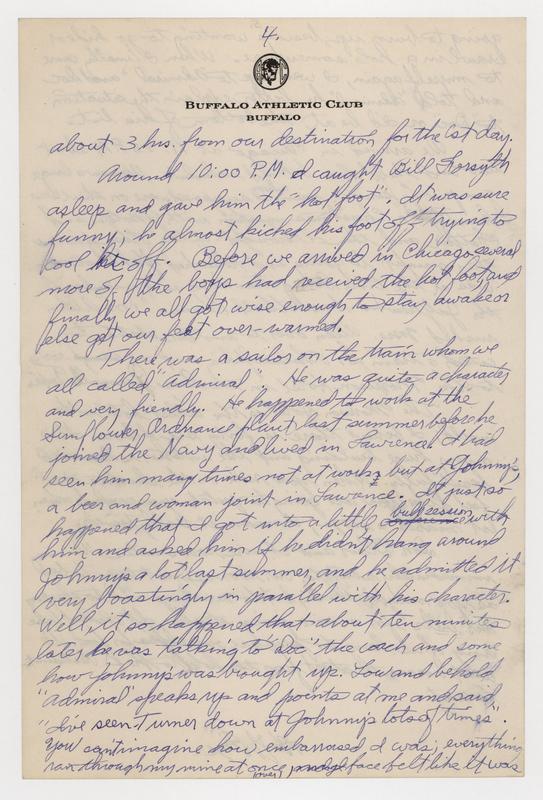 4.
BUFFALO ATHLETIC CLUB
BUFFALO
about 3 hrs. from our destination for the 1st day.
Around 10:00 P.M. I caught Bill Forsyth
asleep and gave him the "hot foot". It was sure
funny; he almost kicked his foot off trying to
cool it off. Before we arrived in Chicago several
more of the boys had received the hot foot, and
finally we all got wise enough to stay awake or
else get our feet over-warmed.
There was a sailor on the train whom we
all called "Admiral". He was quite a character
and very friendly. He happened to work at the
Sunflower Ordnance plant last summer before he
joined the Navy and lived in Lawrence. I had
seen him many times not at work, but at Johnny's,
a beer and woman joint in Lawrence. It just so
happened that I got into a little bull session with
him and asked him if he didn't hang around
Johnny's a lot last summer, and he admitted it
very boastingly in parallel with his character.
Well, it so happened that about ten minutes
later he was talking to "Doc" the coach and some
how Johnny's was brought up. Low and behold
"Admiral" speaks up and points at me and said
"I've seen Turner down at Johnny's lots of times".
You can't imagine how embarrased I was; everything
ran through my mine at once, face felt like it was